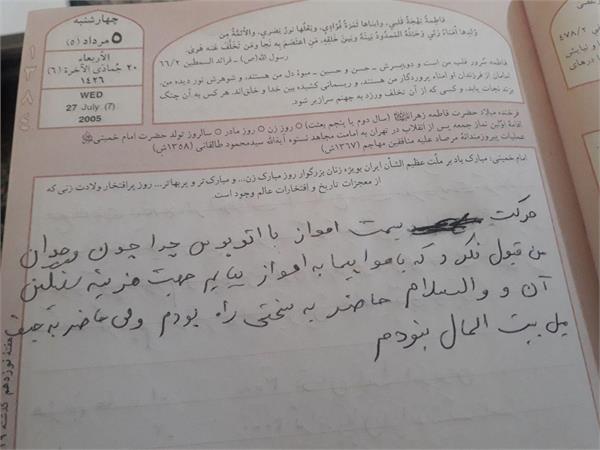 چهارشنبه
۵ مرداد (۵)
الأربعاء
۲۰ جُمادَی الآخرة (۶)
۱۴۲۶
WED
27 July (7)
2005
۱۳۸۴
فاطِمَةُ بَهْجَةُ قَلبي، وَابناها ثَمَرَةُ فُؤادي، وَبَعْلُها نورُ بَصَري، والأئمَّةُ مِن
وُلدِها أُمَناءُ رَبّي وَحَبْلُهُ المَمدُودُ بَينَهُ وَبَينَ خَلقِهِ، مَن اعتَصَمَ بِهِ نَجا وَمَن تَخَلَّفَ عَنهُ هَوی.
رسول الله(ص) ـ فرائد السمطین ۶۶/۲
فاطمه سُرور قلب من است و دو پسرش ـ حسن و حسین ـ میوهٔ دل من هستند، و شوهرش نور دیده من.
امامان از فرزندان او اُمناء پروردگار من هستند، و ریسمانی کشیده بین خدا و خلق‌اند. هر کس به آن چنگ
زند نجات یابد، و کسی که از آن تخلف ورزد به جهنم سرازیر شود.
فرخنده میلاد حضرت فاطمه زهرا (سال دوم یا پنجم بعثت) ○ روز زن ○ روز مادر ○ سالروز تولد حضرت امام خمینی
اقامهٔ اوّلین نماز جمعه پس از انقلاب در تهران به امامت مجاهد نستوه آیةالله سیدمحمود طالقانی (۱۳۵۸ش)
عملیات پیروزمندانهٔ مرصاد علیه منافقین مهاجم (۱۳۶۷ش)
امام خمینی: مبارک باد بر ملّت عظیم الشأن ایران بویژه زنان بزرگوار روز مبارک زن... و مبارک تر و پربهاتر... روز پرافتخار ولادت زنی که
از معجزات تاریخ و افتخارات عالم وجود است.
حرکت بسمت اهواز با اتوبوس چرا چون وجدان
من قبول نکرد که با هواپیما به اهواز بیایم جهت هزینه سنگین
آن و والسلام حاضر به سختی راه بودم ولی حاضر به حیف
میل بیت المال نبودم
هفتهٔ نوزدهم گذشته
۴۷۸/۲